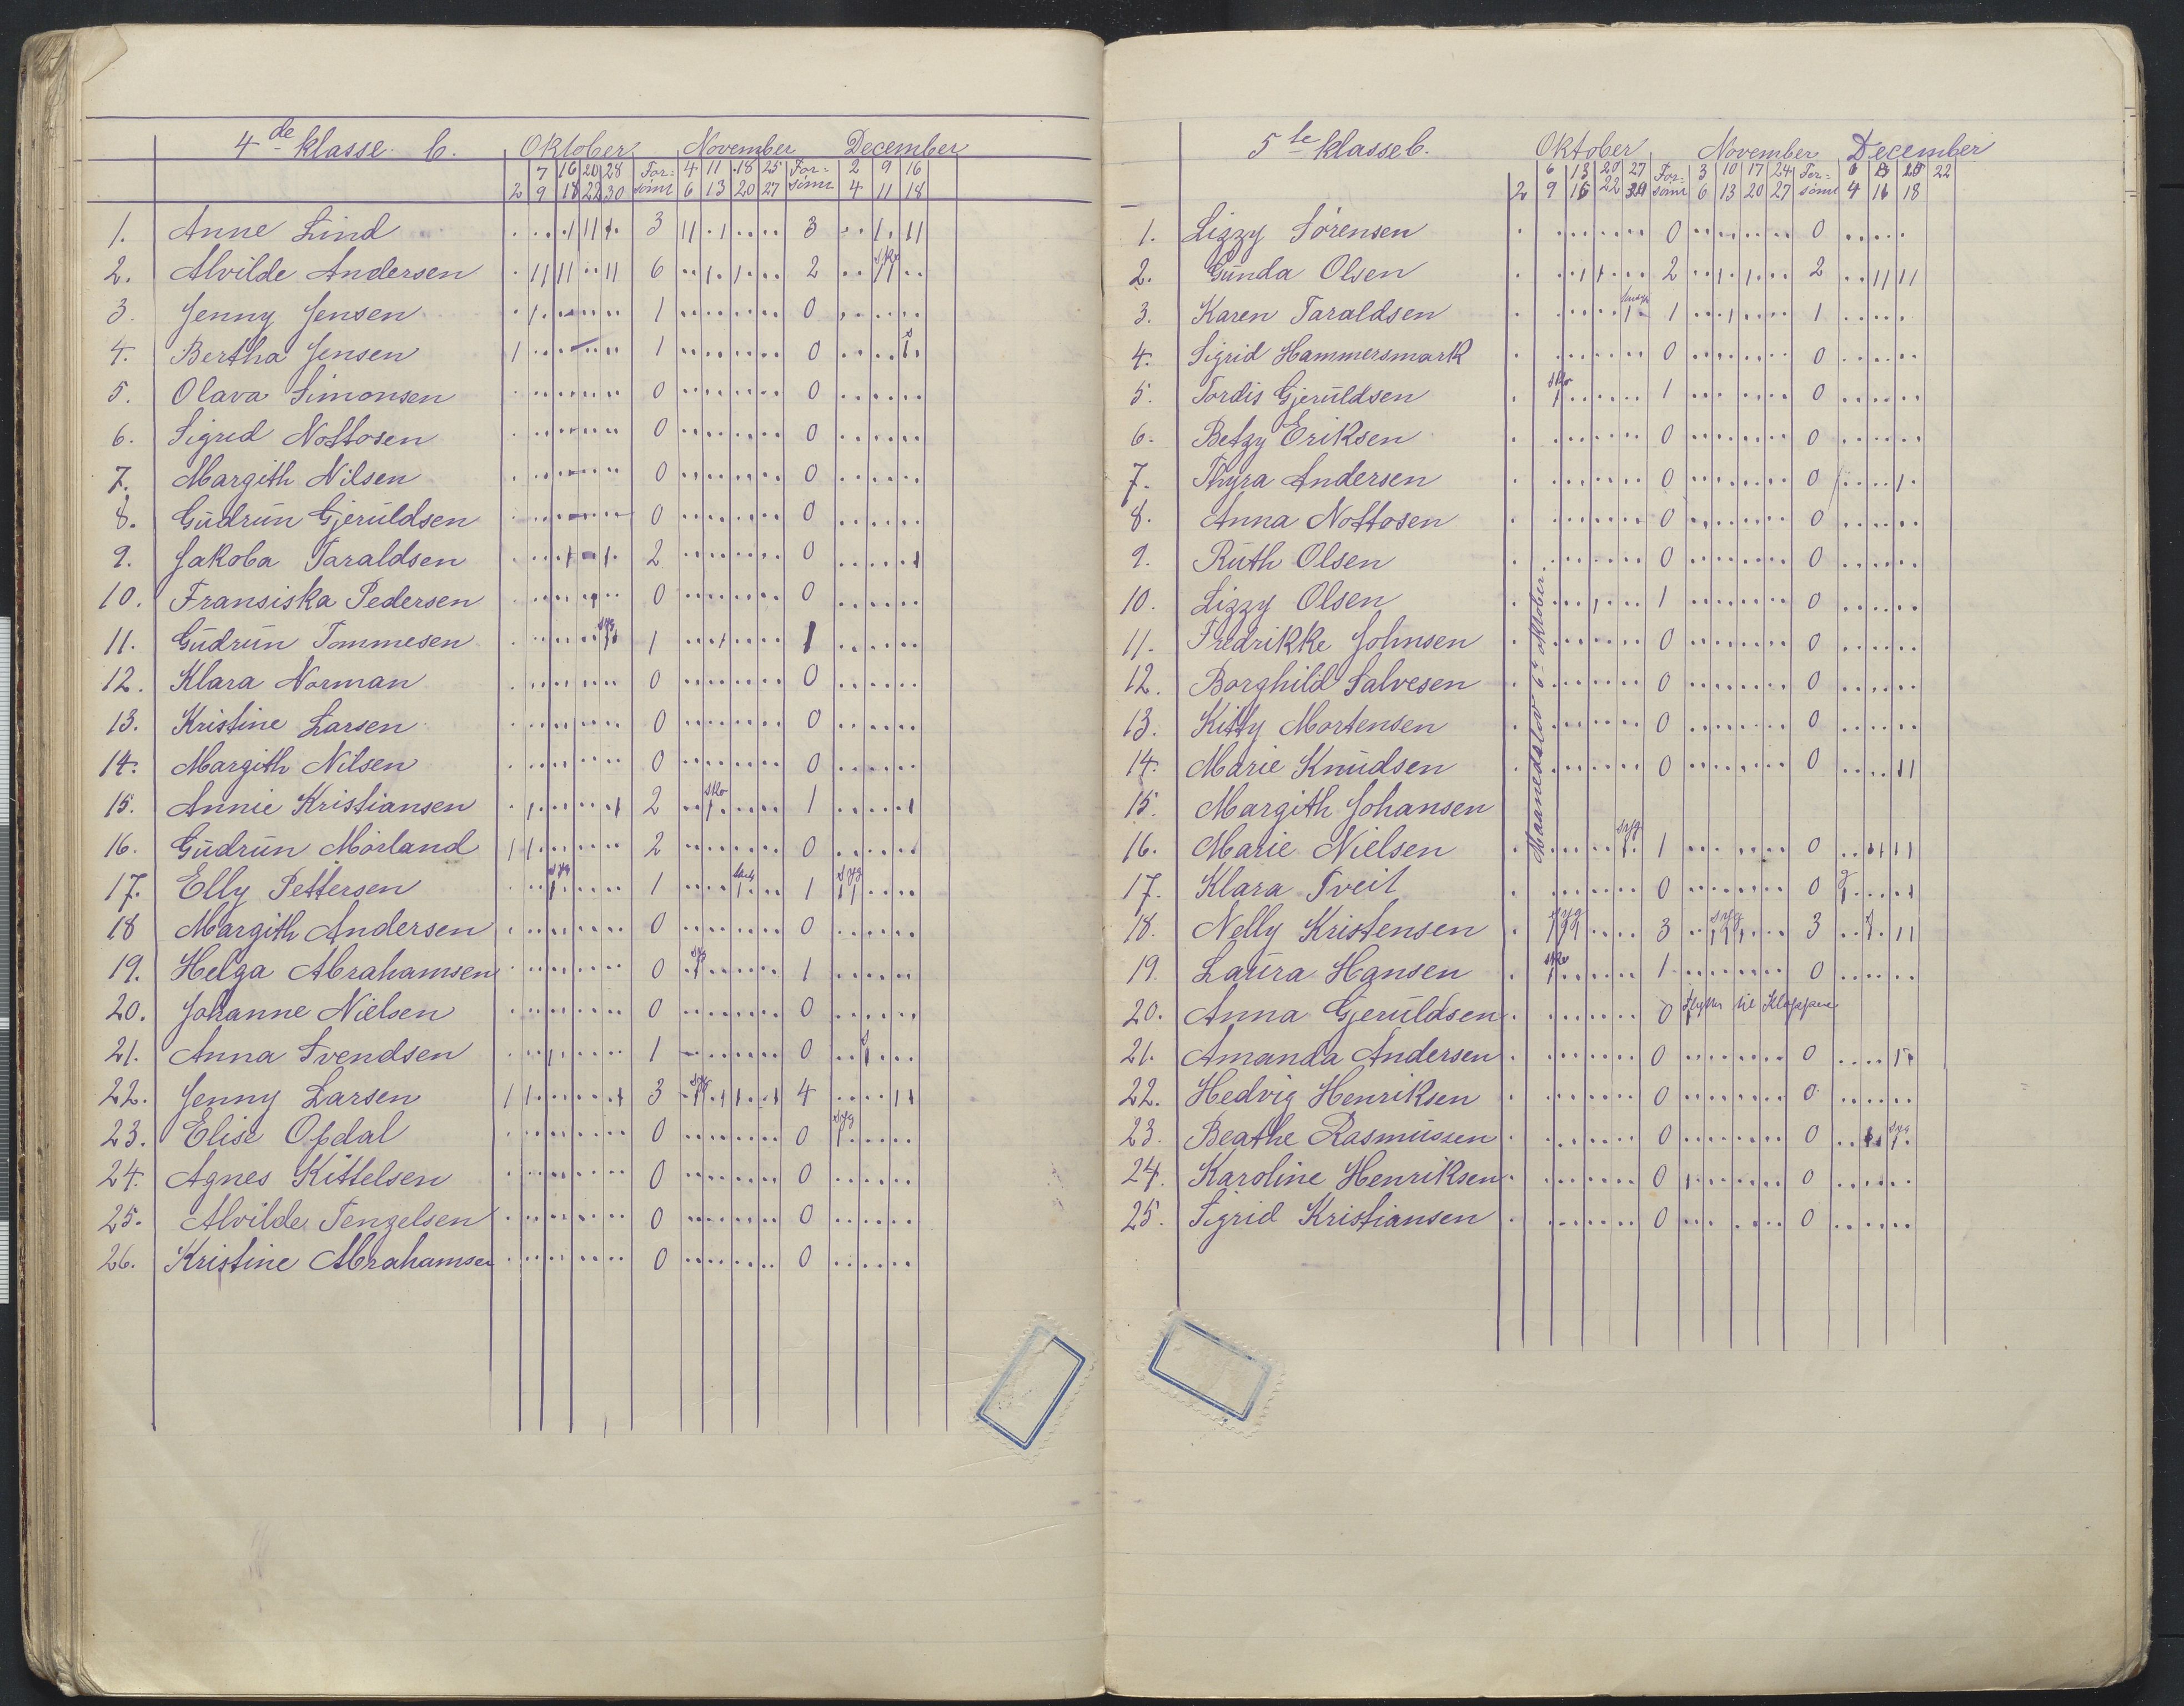 4de klasse b. Oktober November December
7 16 20 28 For= 4 11 18 25 For= 2 9 16
2 9 18 22 30 sömt 6 13 20 27 sömt 4 11 18
1. Anne Lind 3 3
2. Alvilde Andersen 6 2 sko
3. Jenny Jensen 1 0
4. Bertha Jensen 1 0 s
5. Olava Simonsen 0 0
6. Sigrid Nottosen 0 0
7. Margith Nilsen 0 0
8. Gudrun Gjeruldsen 0 0
9. Jakoba Taraldsen 2 0
10. Fransiska Pedersen 0 0
11. Gudrun Tommesen syg 1 1
12. Klara Norman 0 0
13. Kristine Larsen 0 0
14. Margith Nilsen 0 0
15. Annie Kristiansen 2 sko 1
16. Gudrun Mörland 2 0
17. Elly Pettersen syg 1 1 syg
18 Margith Andersen 0 0
19. Helga Abrahamsen 0 syg 1
20. Johanne Nielsen 0 0
21. Anna Svendsen 1 0 s
22. Jenny Larsen 3 syg 4
23. Elise Opdal 0 0 syg
24. Agnes Kittelsen 0 0
25. Alvilde Tengelsen 0 0
26. Kristine Abrahamsen 0 0
5te klasse b. Oktober November December
6 13 20 27 For= 3 10 17 24 For= 6 22
2 9 16 22 sömt 6 13 20 27 sömt 4 16 18
1. Lizzy Sørensen 0 0
2. Gunda Olsen 2 2
3. Karen Taraldsen 1 1
4. Sigrid Hammersmark 0 0
5. Tordis Gjeruldsen sko 1 0
6. Betzy Eriksen 0 0
7. Thyra Andersen 0 0
8. Anna Nottosen 0 0
9. Ruth Olsen 0 0
10. Lizzy Olsen 1 0
11. Fredrikke Johnsen 0 0
12. Borghild Salvesen 0 0
13. Kitty Mortensen 0 0
14. Marie Knudsen 0 0
15. Margith Johansen
16. Marie Nielsen syg 1 0
17. Klara Tveit 0 0
18. Nelly Kristensen syg 3 syg 3
19. Laura Hansen sko 1 0
20. Anna Gjeruldsen 0 til Kloppene
21. Amanda Andersen 0 0
22. Hedvig Henriksen 0 0
23. Beathe Rasmussen 0 0 syg
24. Karoline Henriksen 0 0
25. Sigrid Kristiansen 0 0
Maanedslov 6te oktober.